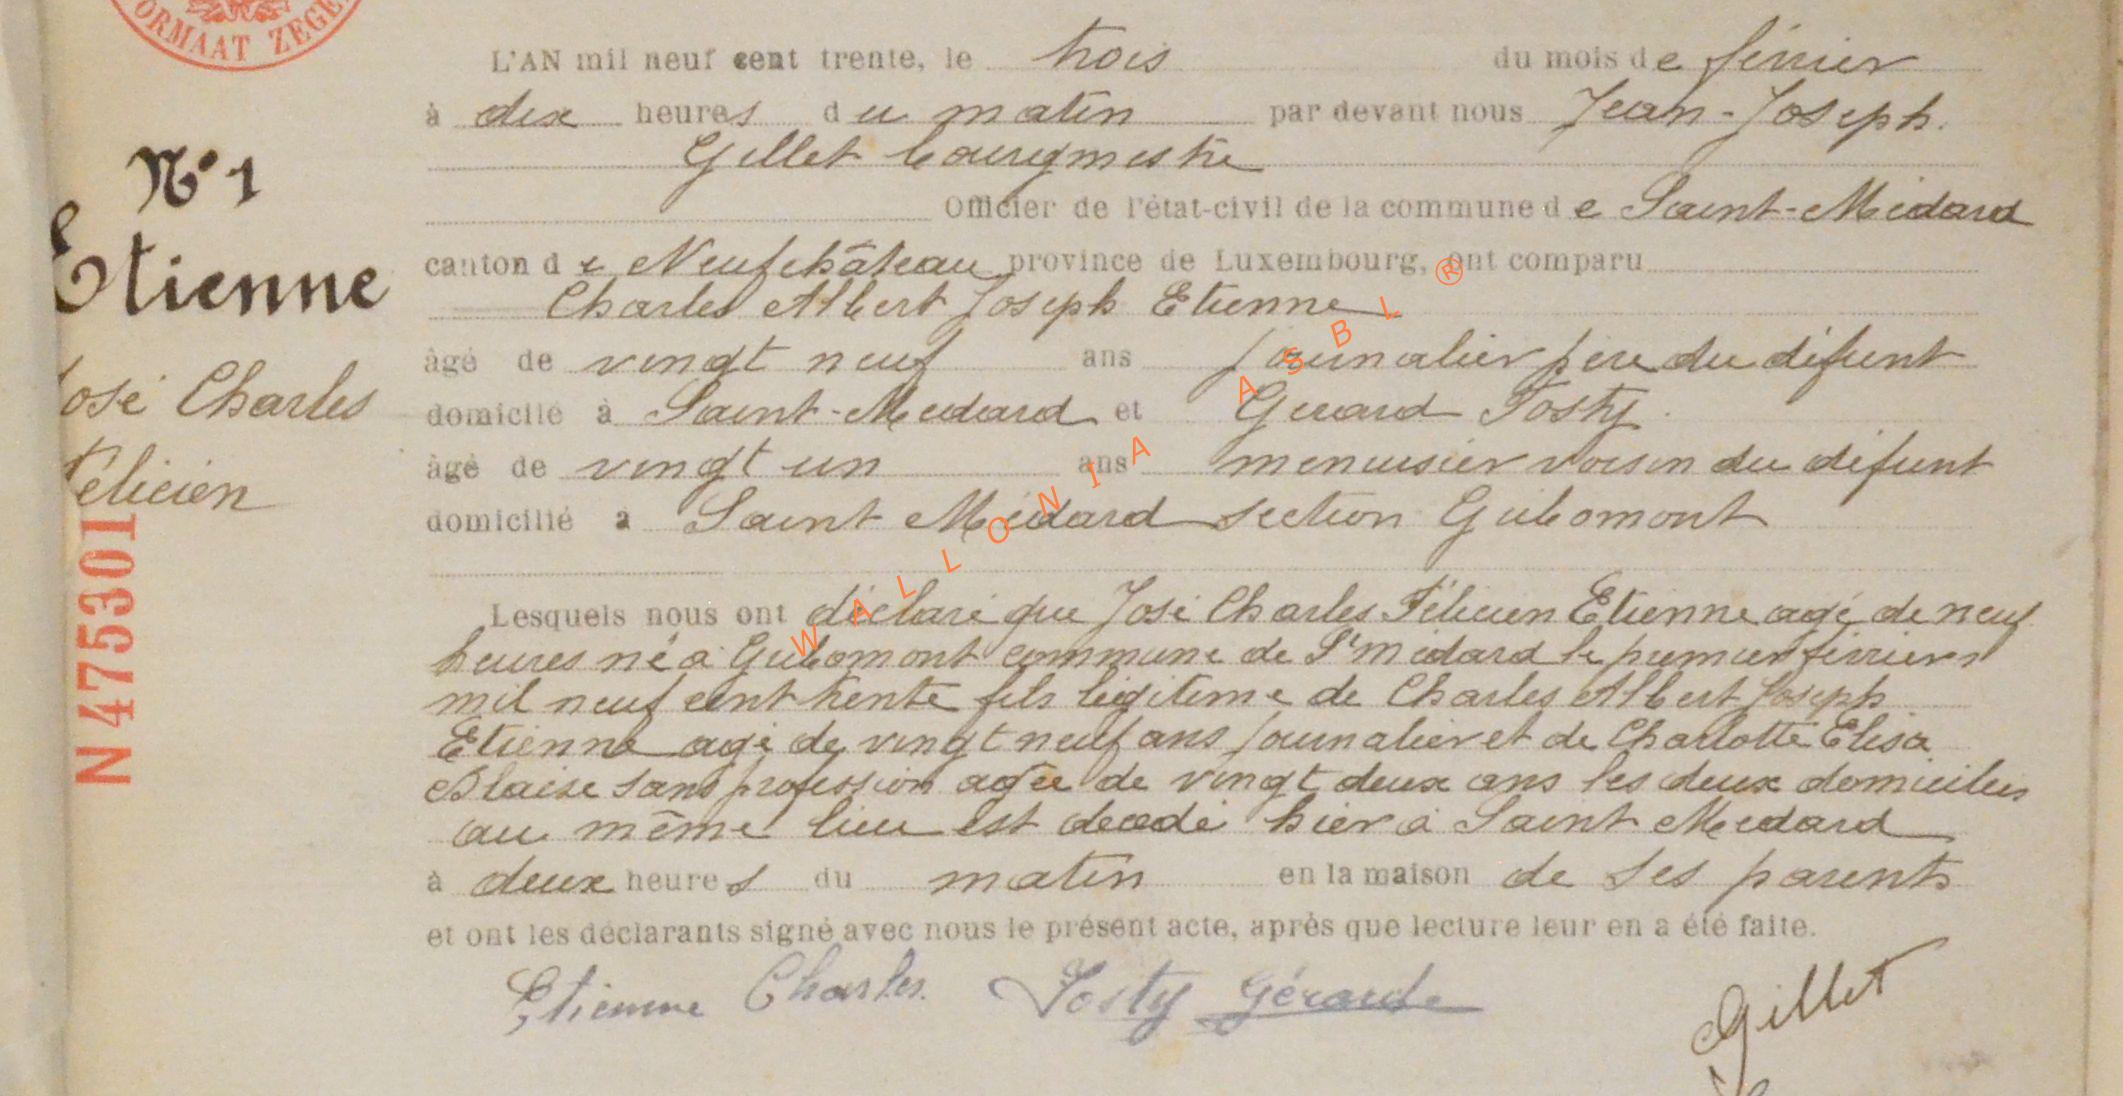 ORMAAT ZEGE
L'AN mil neuf cent trente, le trois du mois de février
à dix heures du matin par devant nous Jean-Joseph
Gillet bourgmestre
Officier de l'état-civil de la commune de Saint-Médard
canton de Neufchâteau province de Luxembourg, ont comparu
Charles Albert Joseph Etienne
âgé de vingt neuf ans journalier père du défunt
domicilié à Saint-Médard et Gérard Tosty
âgé de vingt un ans menuisier voisin du défunt
domicilié à Saint Médard section Gribomont
Lesquels nous ont déclaré que José Charles Félicien Etienne agé de neuf
heures né à Gribomont commune de St médard le premier février
mil neuf cent trente fils légitime de Charles Albert Joseph
Etienne agé de vingt neuf ans journalier et de Charlotte Elisa
Blaise sans profession agée de vingt deux ans les deux domiciliés
au même lieu est décédé hier à Saint Médard
à deux heures du matin en la maison de ses parents
et ont les déclarants signé avec nous le présent acte, après que lecture leur en a été faite.
Etienne Charles Tosty Gérard
Gillet
N° 1
Etienne
José Charles
Félicien
N 475301
WALLONIA ASBL ®